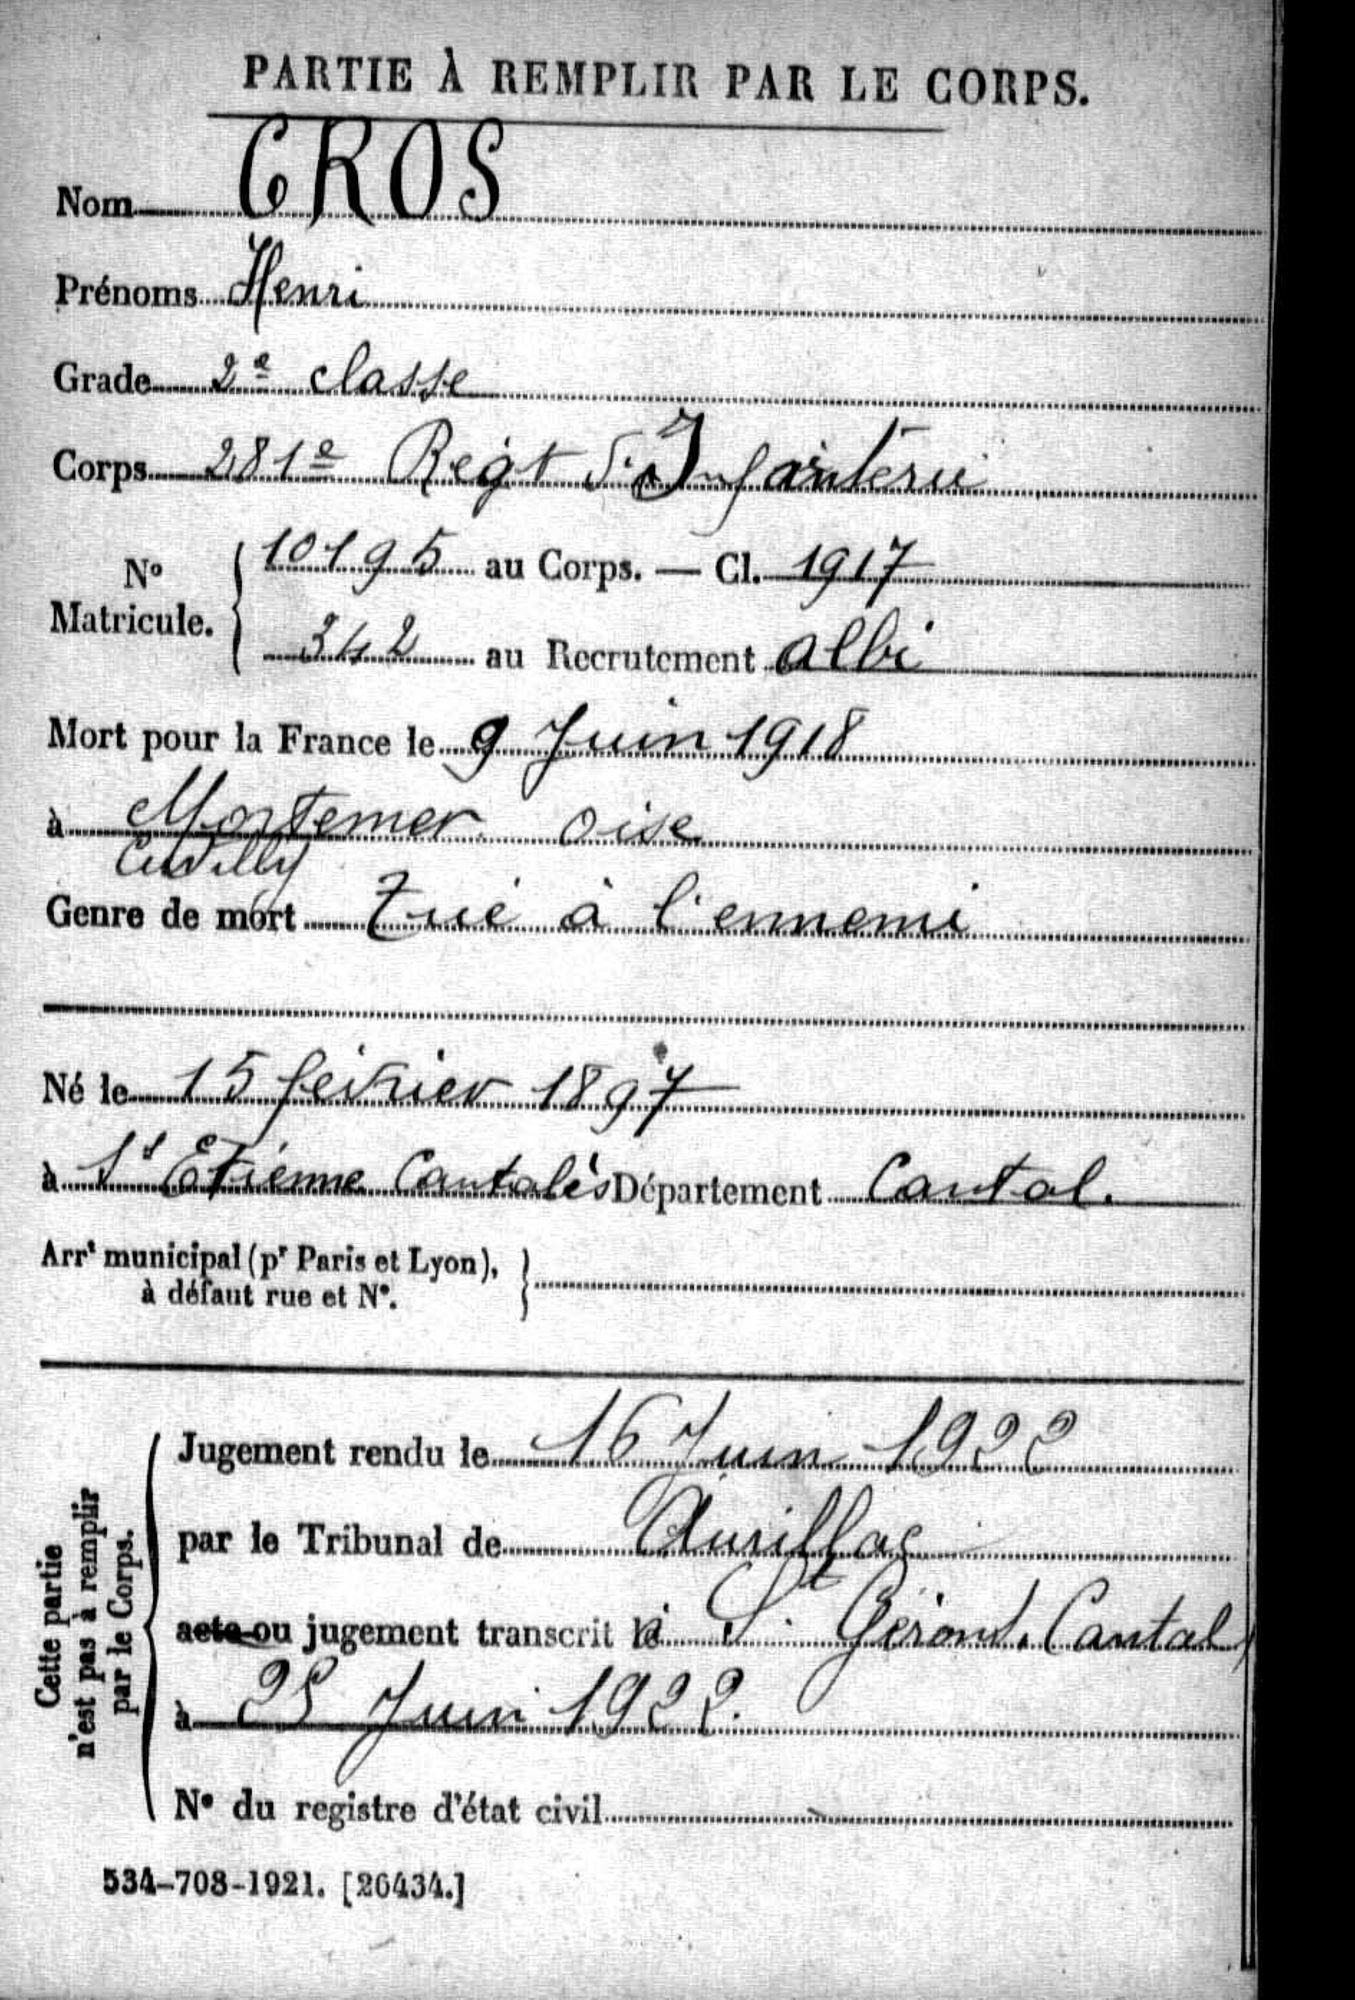 PARTIE À REMPLIR PAR LE CORPS.
Nom CROS
Prénoms Henri
Grade 2e classe
Corps 281e Regt d'Infanterie
No Matricule. 10195 au Corps. — Cl. 1917
342 au Recrutement Albi
Mort pour la France le 9 Juin 1918
à Mortemer Oise
Cuvilly
Genre de mort Tué à l'ennemi
Né le 15 février 1897
à St Etienne Cantalès Département Cantal.
Arrt municipal (pr Paris et Lyon),
à défaut rue et No.
Cette partie
n'est pas à remplir
par le Corps.
Jugement rendu le 16 Juin 1922
par le Tribunal de Aurillac
acte ou jugement transcrit à St Gérons. Cantal
à 25 Juin 1922.
No du registre d'état civil
534-708-1921. [26434.]